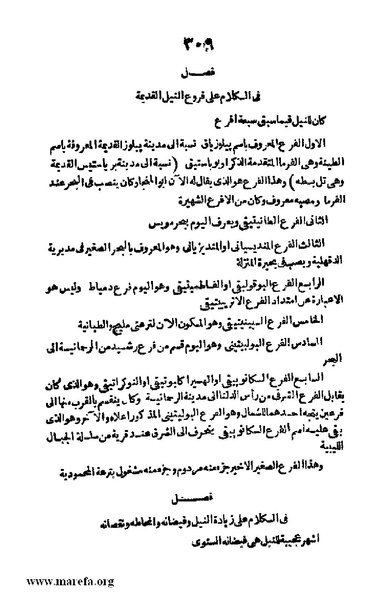 ٣٠٩
فصل
فى الكلام على فروع النيل القديمة
كان للنيل فيما سبق سبعة أفرع
الاول الفرع المعروف باسم بيلوزياق نسبة الى مدينة بيلوز القديمة المعروفة باسم
الطينة وهى الفرما المتقدمة الذكر او بوباستيتى (نسبة الى مدينة بوباستيس القديمة
وهى تل بسطه) وهذا الفرع هو الذى يقال له الآن ابو المنجا وكان ينصب فى البحر عند
الفرما ومصبه معروف وكان من الافرع الشهيرة
الثانى الفرع الطانيتيتى ويعرف اليوم ببحر مويس
الثالث الفرع المنديسيانى او المنديزيانى وهو المعروف بالبحر الصغير فى مديرية
الدقهلية ويصب فى بحيرة المنزلة
الرابع الفرع البوقوليتى او الفاطميتيتى وهو اليوم فرع دمياط وليس هو
الا عبارة عن امتداد الفرع الاتريبيتيتى
الخامس الفرع السبينيتيتى وهو المكون الآن لترعتى مليج والطبانية
السادس الفرع البولبيتينى وهو اليوم قسم من فرع رشيد من الرحمانية الى
البحر
السابع الفرع الكانوبيتى او الهيراكليوتيتى او النوكراتيتى وهو الذى كان
يقابل الفرع الشرقى من رأس الدلتا الى مدينة الرحمانية وكان ينقسم بالقرب منها الى
فرعين يتجه احدهما للشمال وهو الفرع البولبيتينى المذكور اعلاه والآخر وهو الذى
بقى عليه اسم الفرع الكانوبيتى ينحرف الى الشرق عند قرية من سلسلة الجبال
الليبية
وهذا الفرع الصغير الاخير جزء منه مردوم وجزء منه مشغول بترعة المحمودية
فصل
فى الكلام على زيادة النيل وفيضانه وانحطاطه ونقصانه
اشهر عجيبة للنيل هى فيضانه السنوى
www.marefa.org